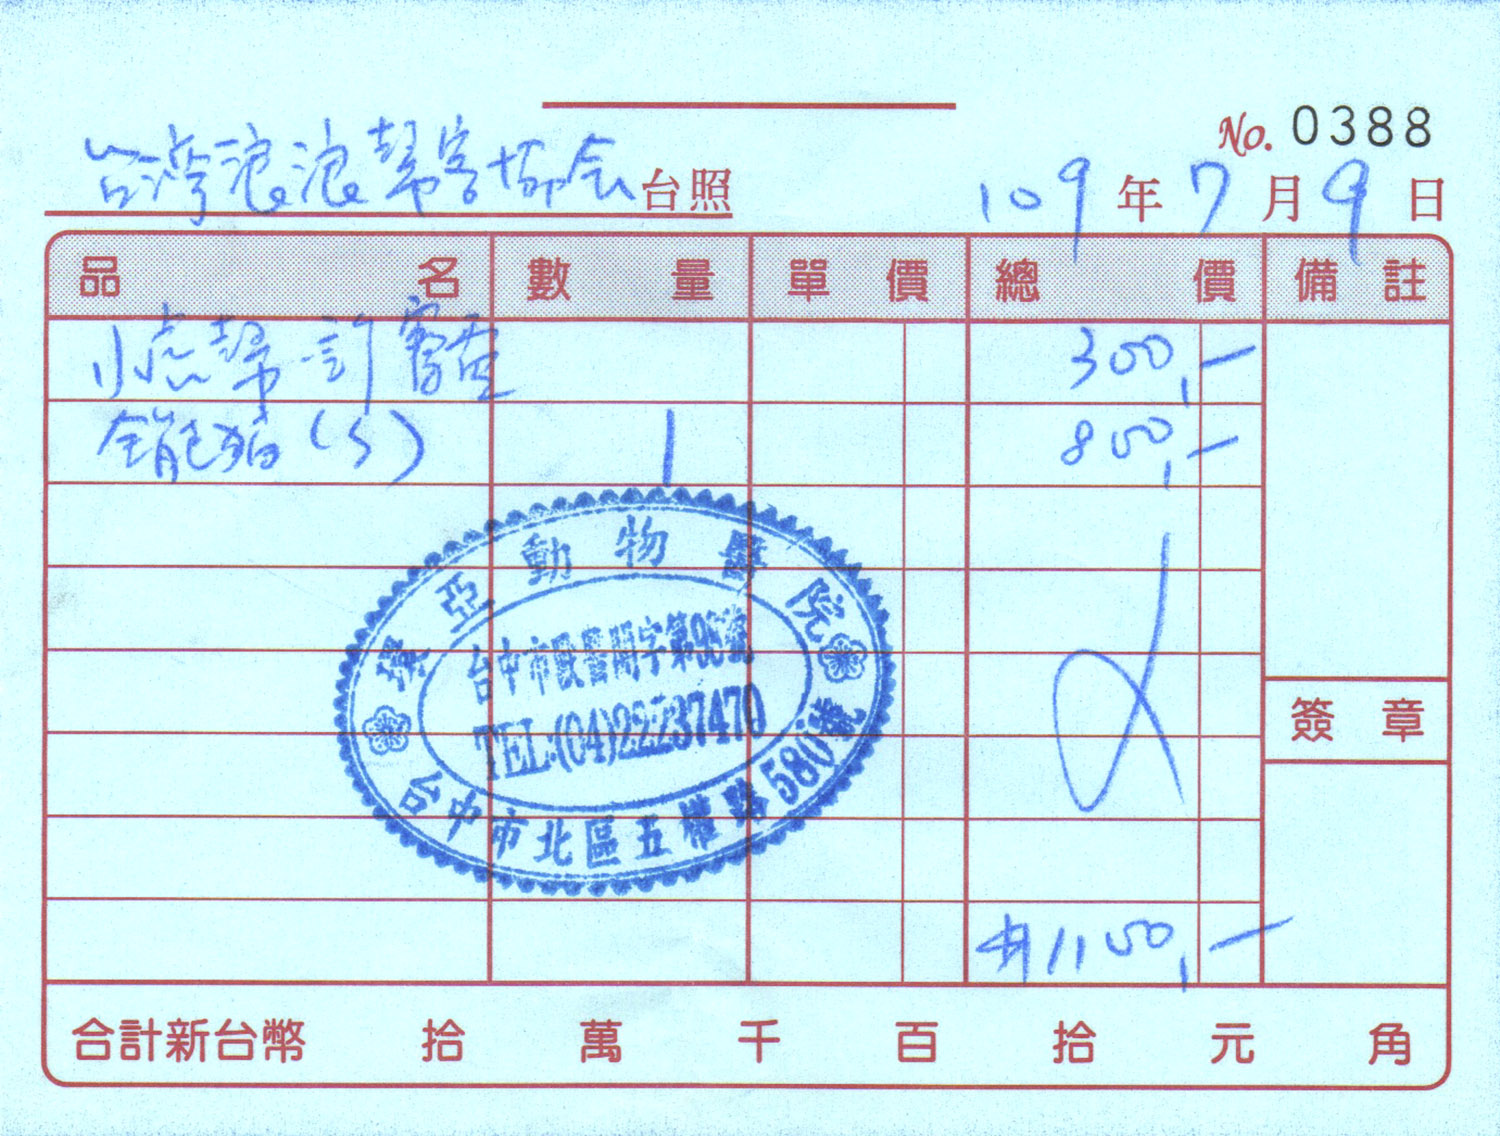 No. 0388
台灣浪浪幫客協会 台照 109年7月9日
品名 數量 單價 總價 備註
小虎幫 300,-
全能 (S) 1 850,-
亞動物醫院
台中市獸醫開字第
TEL:(04)22237470
台中市北區五權路580號
簽章
1150,-
合計新台幣 拾 萬 千 百 拾 元 角